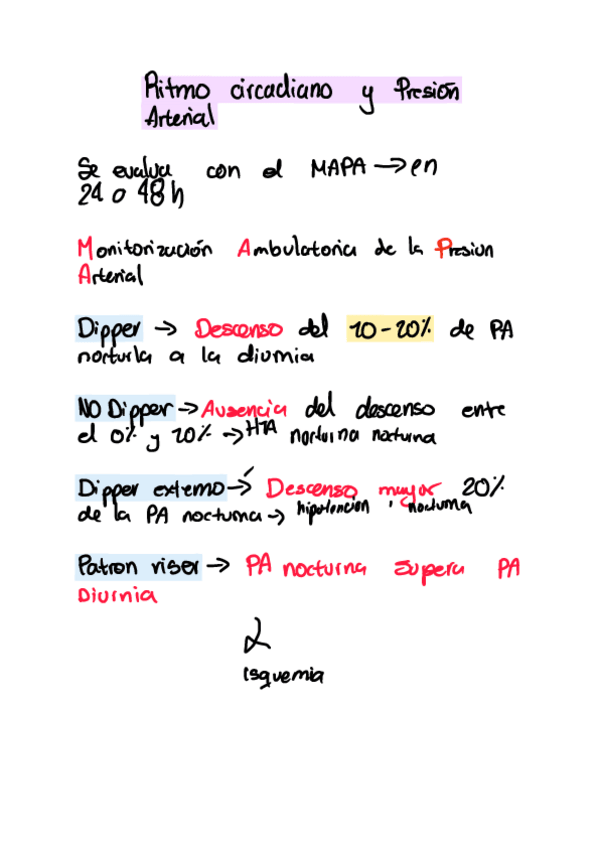 Ritmo circadiano y Presión
Arterial
Se evalua con el MAPA → en
24 o 48 h
Monitorización Ambulatoria de la Presion
Arterial
Dipper → Descenso del 10-20% de PA
norturla a la diurnia
NO Dipper → Ausencia del descenso ente
el 0% y 10% → HTA norturna nocturna
Dipper extemo → Descenso mayor 20%
de la PA nocturna → hipotencion nocturna
Patron riser → PA nocturna supera PA
Diurnia
isquemia